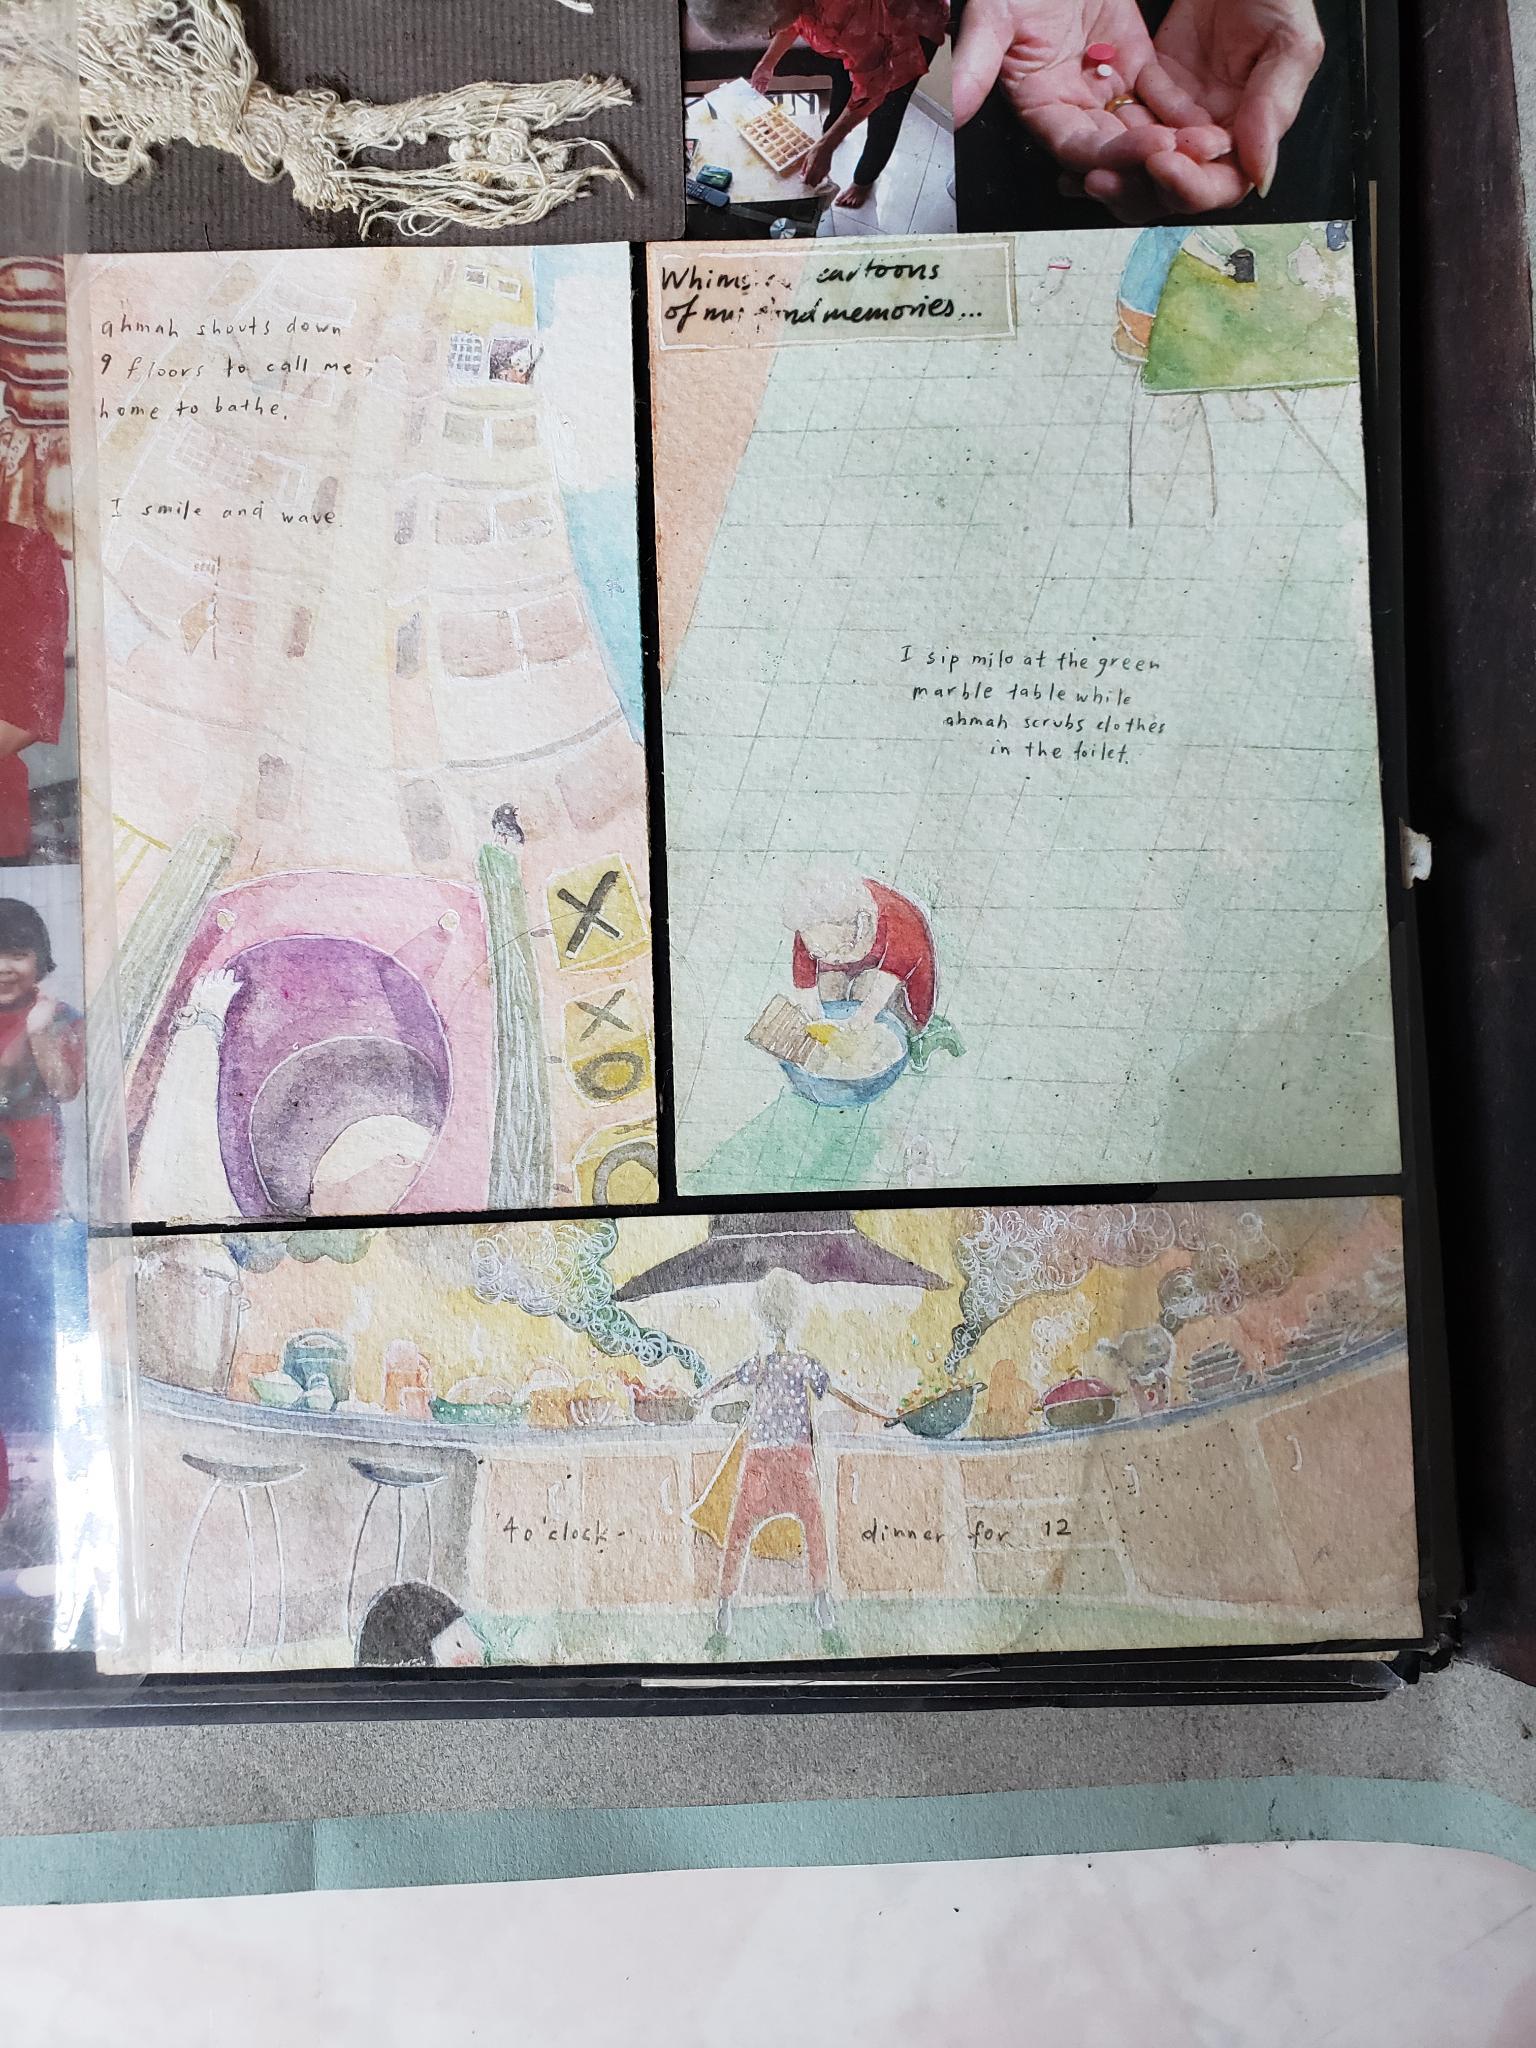 ahmah shouts down
9 floors to call me
home to bathe.
I smile and wave.
cartoons
memories...
I sip milo at the green
marble table while
ahmah scrubs clothes
in the toilet.
X
X
O
4 o'clock- dinner for 12